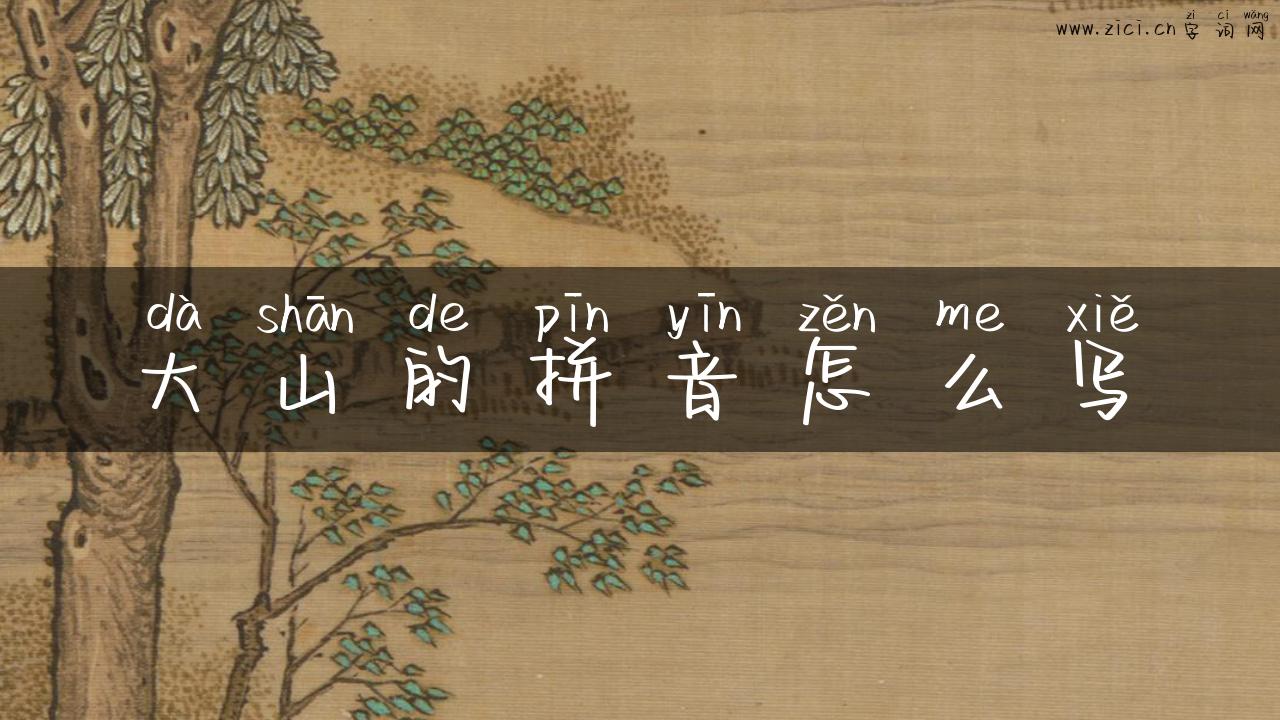 zì cí wǎng
www.zici.cn 字词网
dà shān de pīn yīn zěn me xiě
大山的拼音怎么写